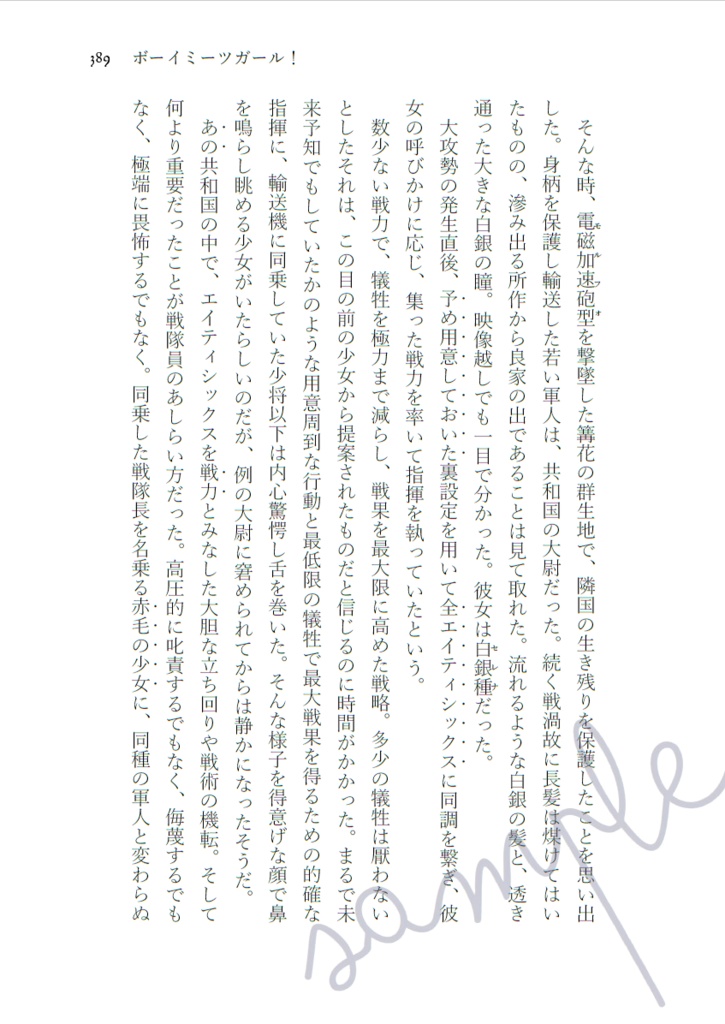 389　ボーイミーツガール！
　そんな時、電磁加速砲型を撃墜した篝花の群生地で、隣国の生き残りを保護したことを思い出
した。身柄を保護し輸送した若い軍人は、共和国の大尉だった。続く戦渦故に長髪は煤けてはい
たものの、滲み出る所作から良家の出であることは見て取れた。流れるような白銀の髪と、透き
通った大きな白銀の瞳。映像越しでも一目で分かった。彼女は白銀種だった。
　大攻勢の発生直後、予め用意しておいた裏設定を用いて全エイティシックスに同調を繋ぎ、彼
女の呼びかけに応じ、集った戦力を率いて指揮を執っていたという。
　数少ない戦力で、犠牲を極力まで減らし、戦果を最大限に高めた戦略。多少の犠牲は厭わない
としたそれは、この目の前の少女から提案されたものだと信じるのに時間がかかった。まるで未
来予知でもしていたかのような用意周到な行動と最低限の犠牲で最大戦果を得るための的確な
指揮に、輸送機に同乗していた少将以下は内心驚愕し舌を巻いた。そんな様子を得意げな顔で鼻
を鳴らし眺める少女がいたらしいのだが、例の大尉に窘められてからは静かになったそうだ。
　あの共和国の中で、エイティシックスを戦力とみなした大胆な立ち回りや戦術の機転。そして
何より重要だったことが戦隊員のあしらい方だった。高圧的に叱責するでもなく、侮蔑するでも
なく、極端に畏怖するでもなく。同乗した戦隊長を名乗る赤毛の少女に、同種の軍人と変わらぬ
モルフォ
セレナ
sample